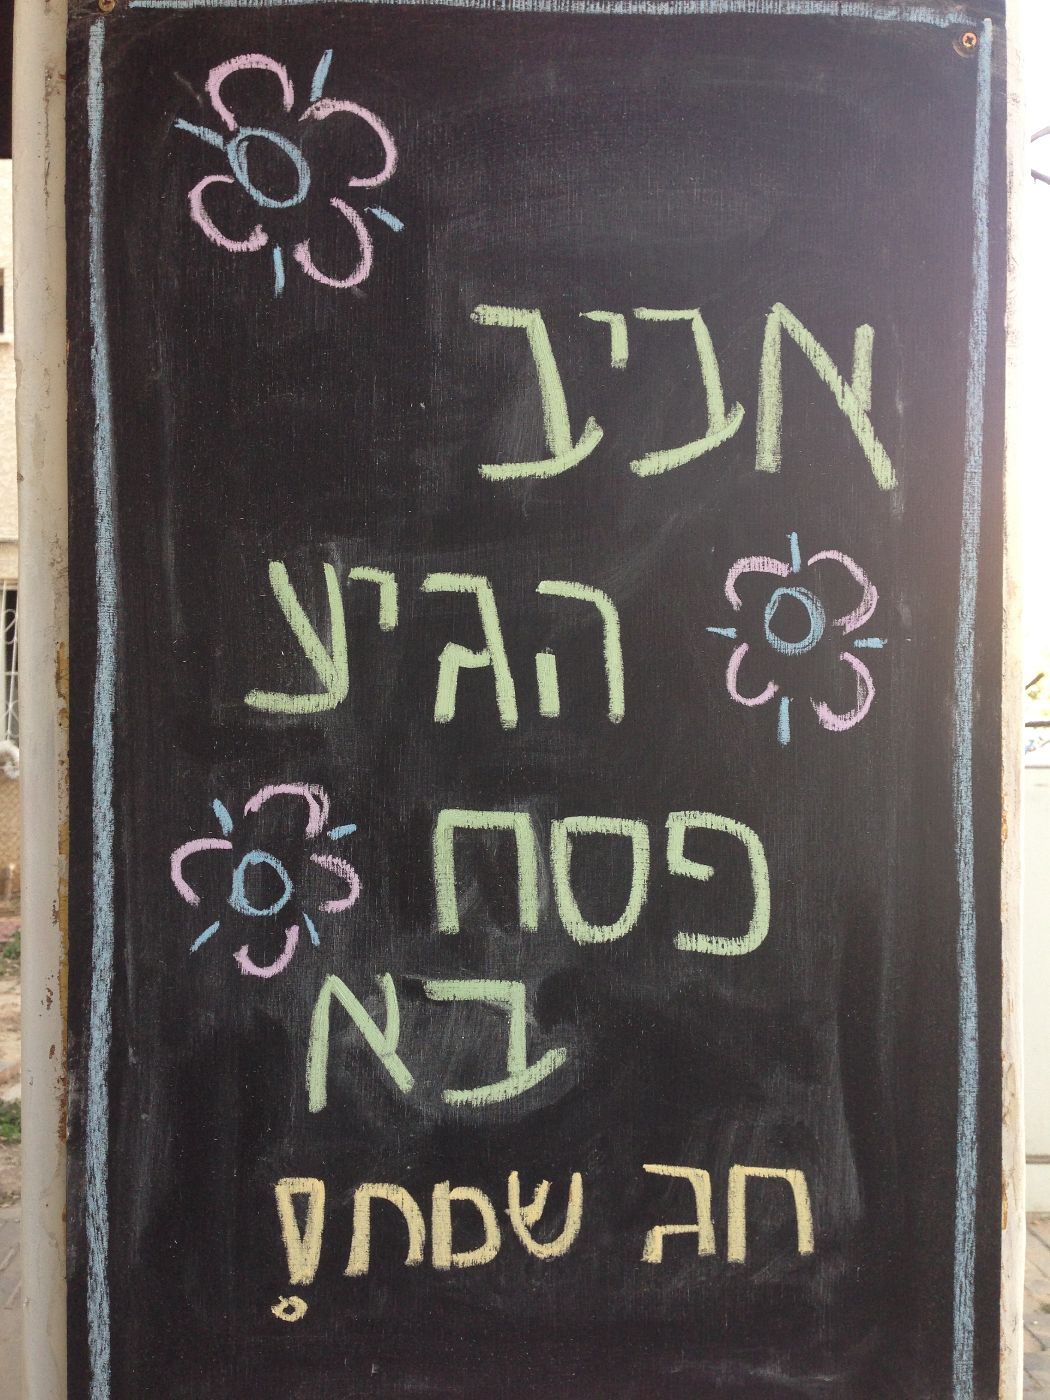 אביב
הגיע
פסח
בא
חג שמח!